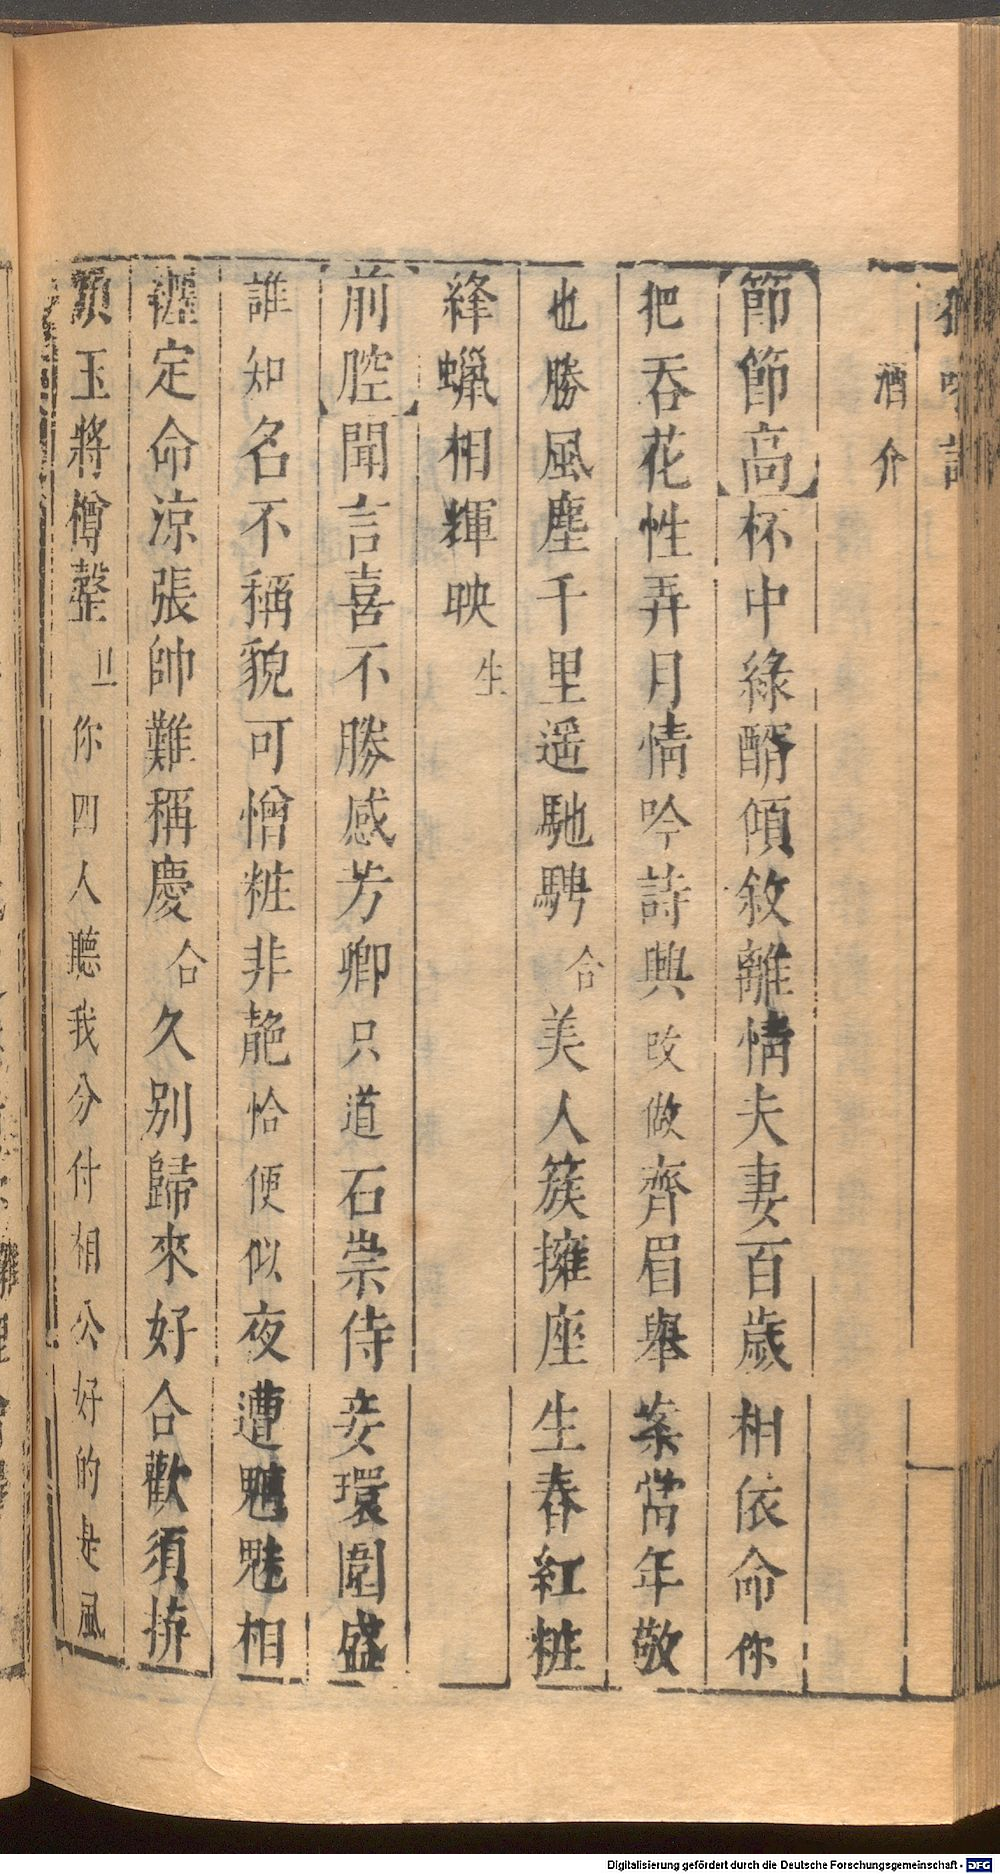 酒介
節節高杯中綠醑傾敘離情夫妻百歲相依命你
把吞花性弄月情吟詩興改做齊眉舉案當年敬
也勝風塵千里遥馳騁合美人簇擁座生春紅粧
絳蠟相輝映生
前腔聞言喜不勝感芳卿只道石崇侍妾環圍盛
誰知名不稱貌可憎粧非靘恰便似夜遭魑魅相
纏定命凉張帥難稱慶合久别歸來好合歡須拚
頹玉將樽罄
你四人聽我分付相公好的是風
Digitalisierung gefördert durch die Deutsche Forschungsgemeinschaft - DFG